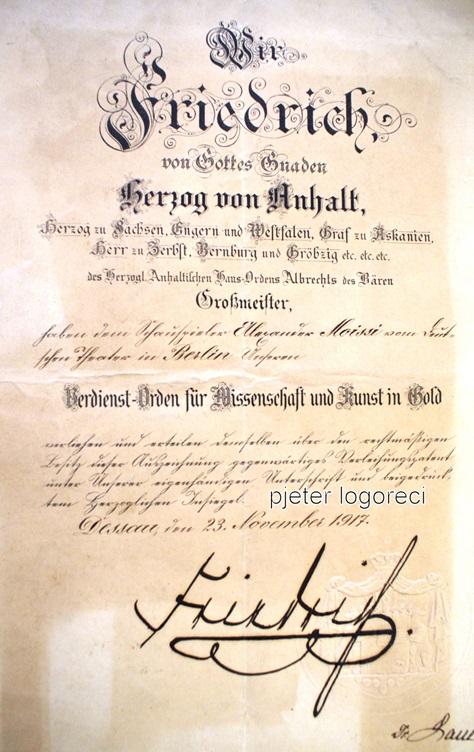 Wir
Friedrich,
von Gottes Gnaden
Herzog von Anhalt,
Herzog zu Sachsen, Engern und Westfalen, Graf zu Askanien,
Herr zu Zerbst, Bernburg und Gröbzig etc. etc. etc.
des Herzogl. Anhaltischen Haus-Ordens Albrechts des Bären
Großmeister,
haben dem Schauspieler Alexander Moissi vom Deut-
schen Theater in Berlin Unseren
Verdienst-Orden für Wissenschaft und Kunst in Gold
verliehen und erteilen demselben über den rechtmäßigen
Besitz dieser Auszeichnung gegenwärtiges Verleihungspatent
unter Unserer eigenhändigen Unterschrift und beigedruck-
tem Herzoglichen Insiegel.
pjeter logoreci
Dessau, den 23. November 1917.
Friedrich.